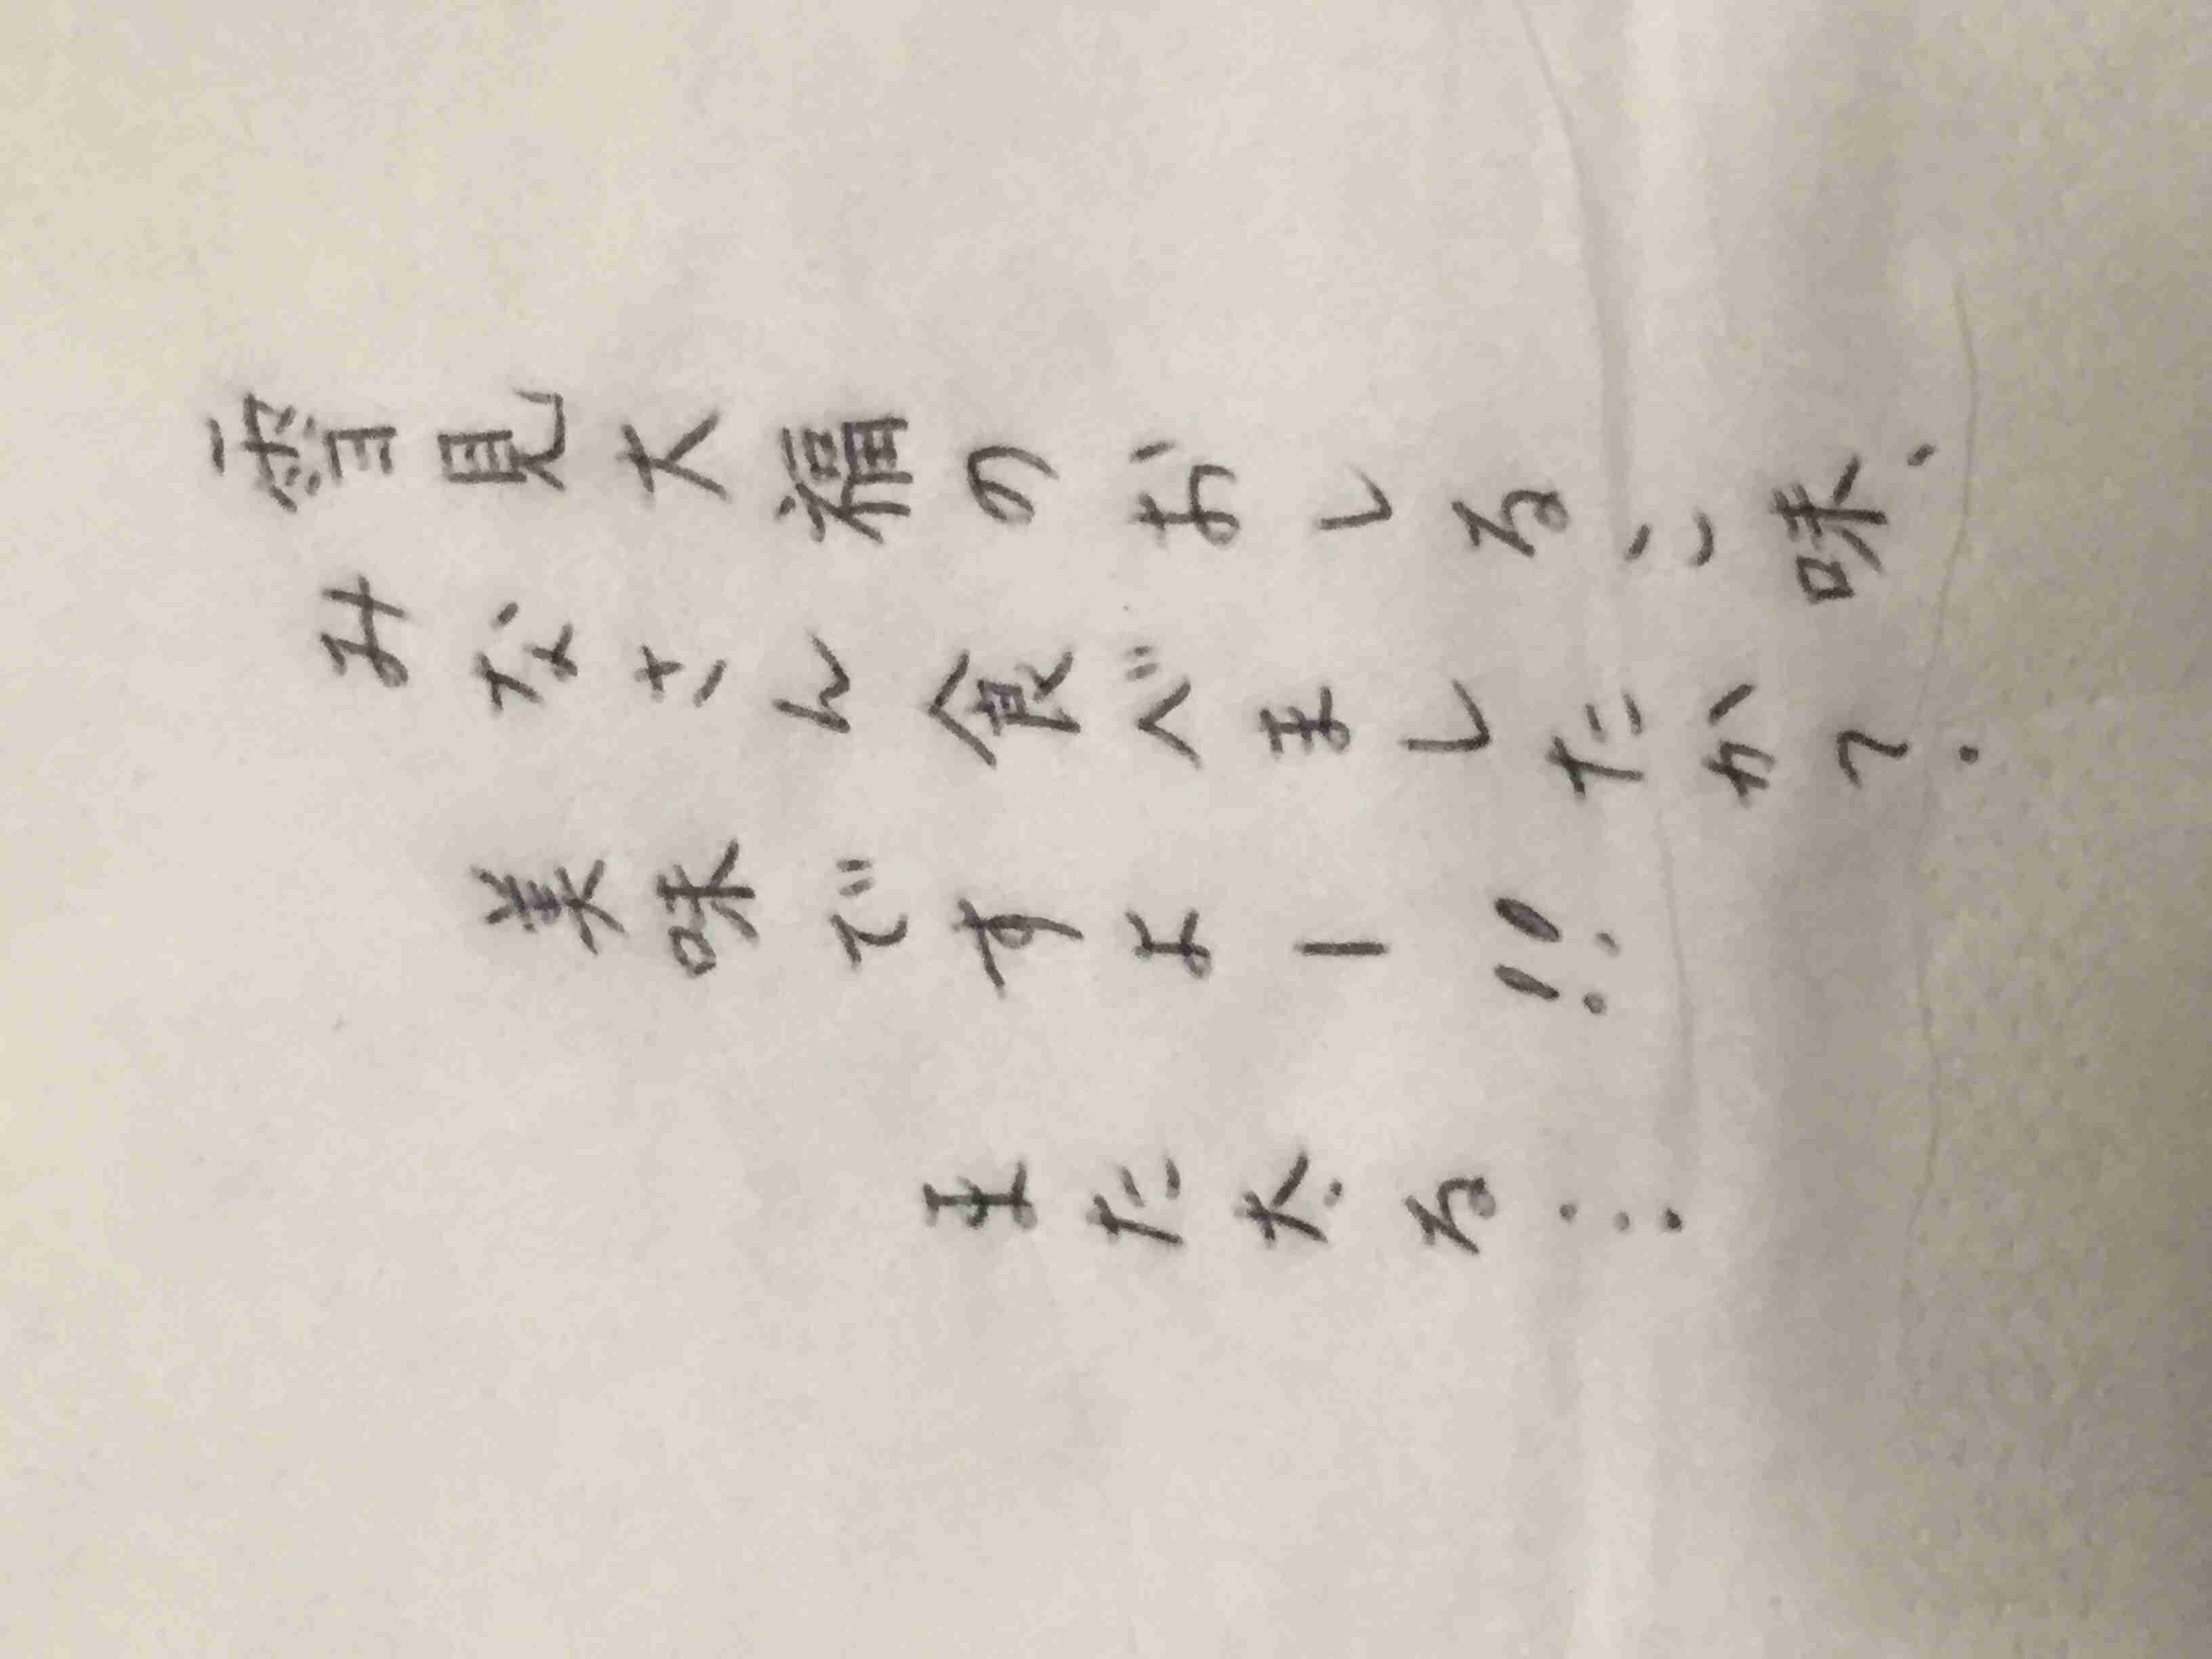 雪見大福のおしるこ味.
みなさん食べましたか?
美味ですよー!!
まだ太る...